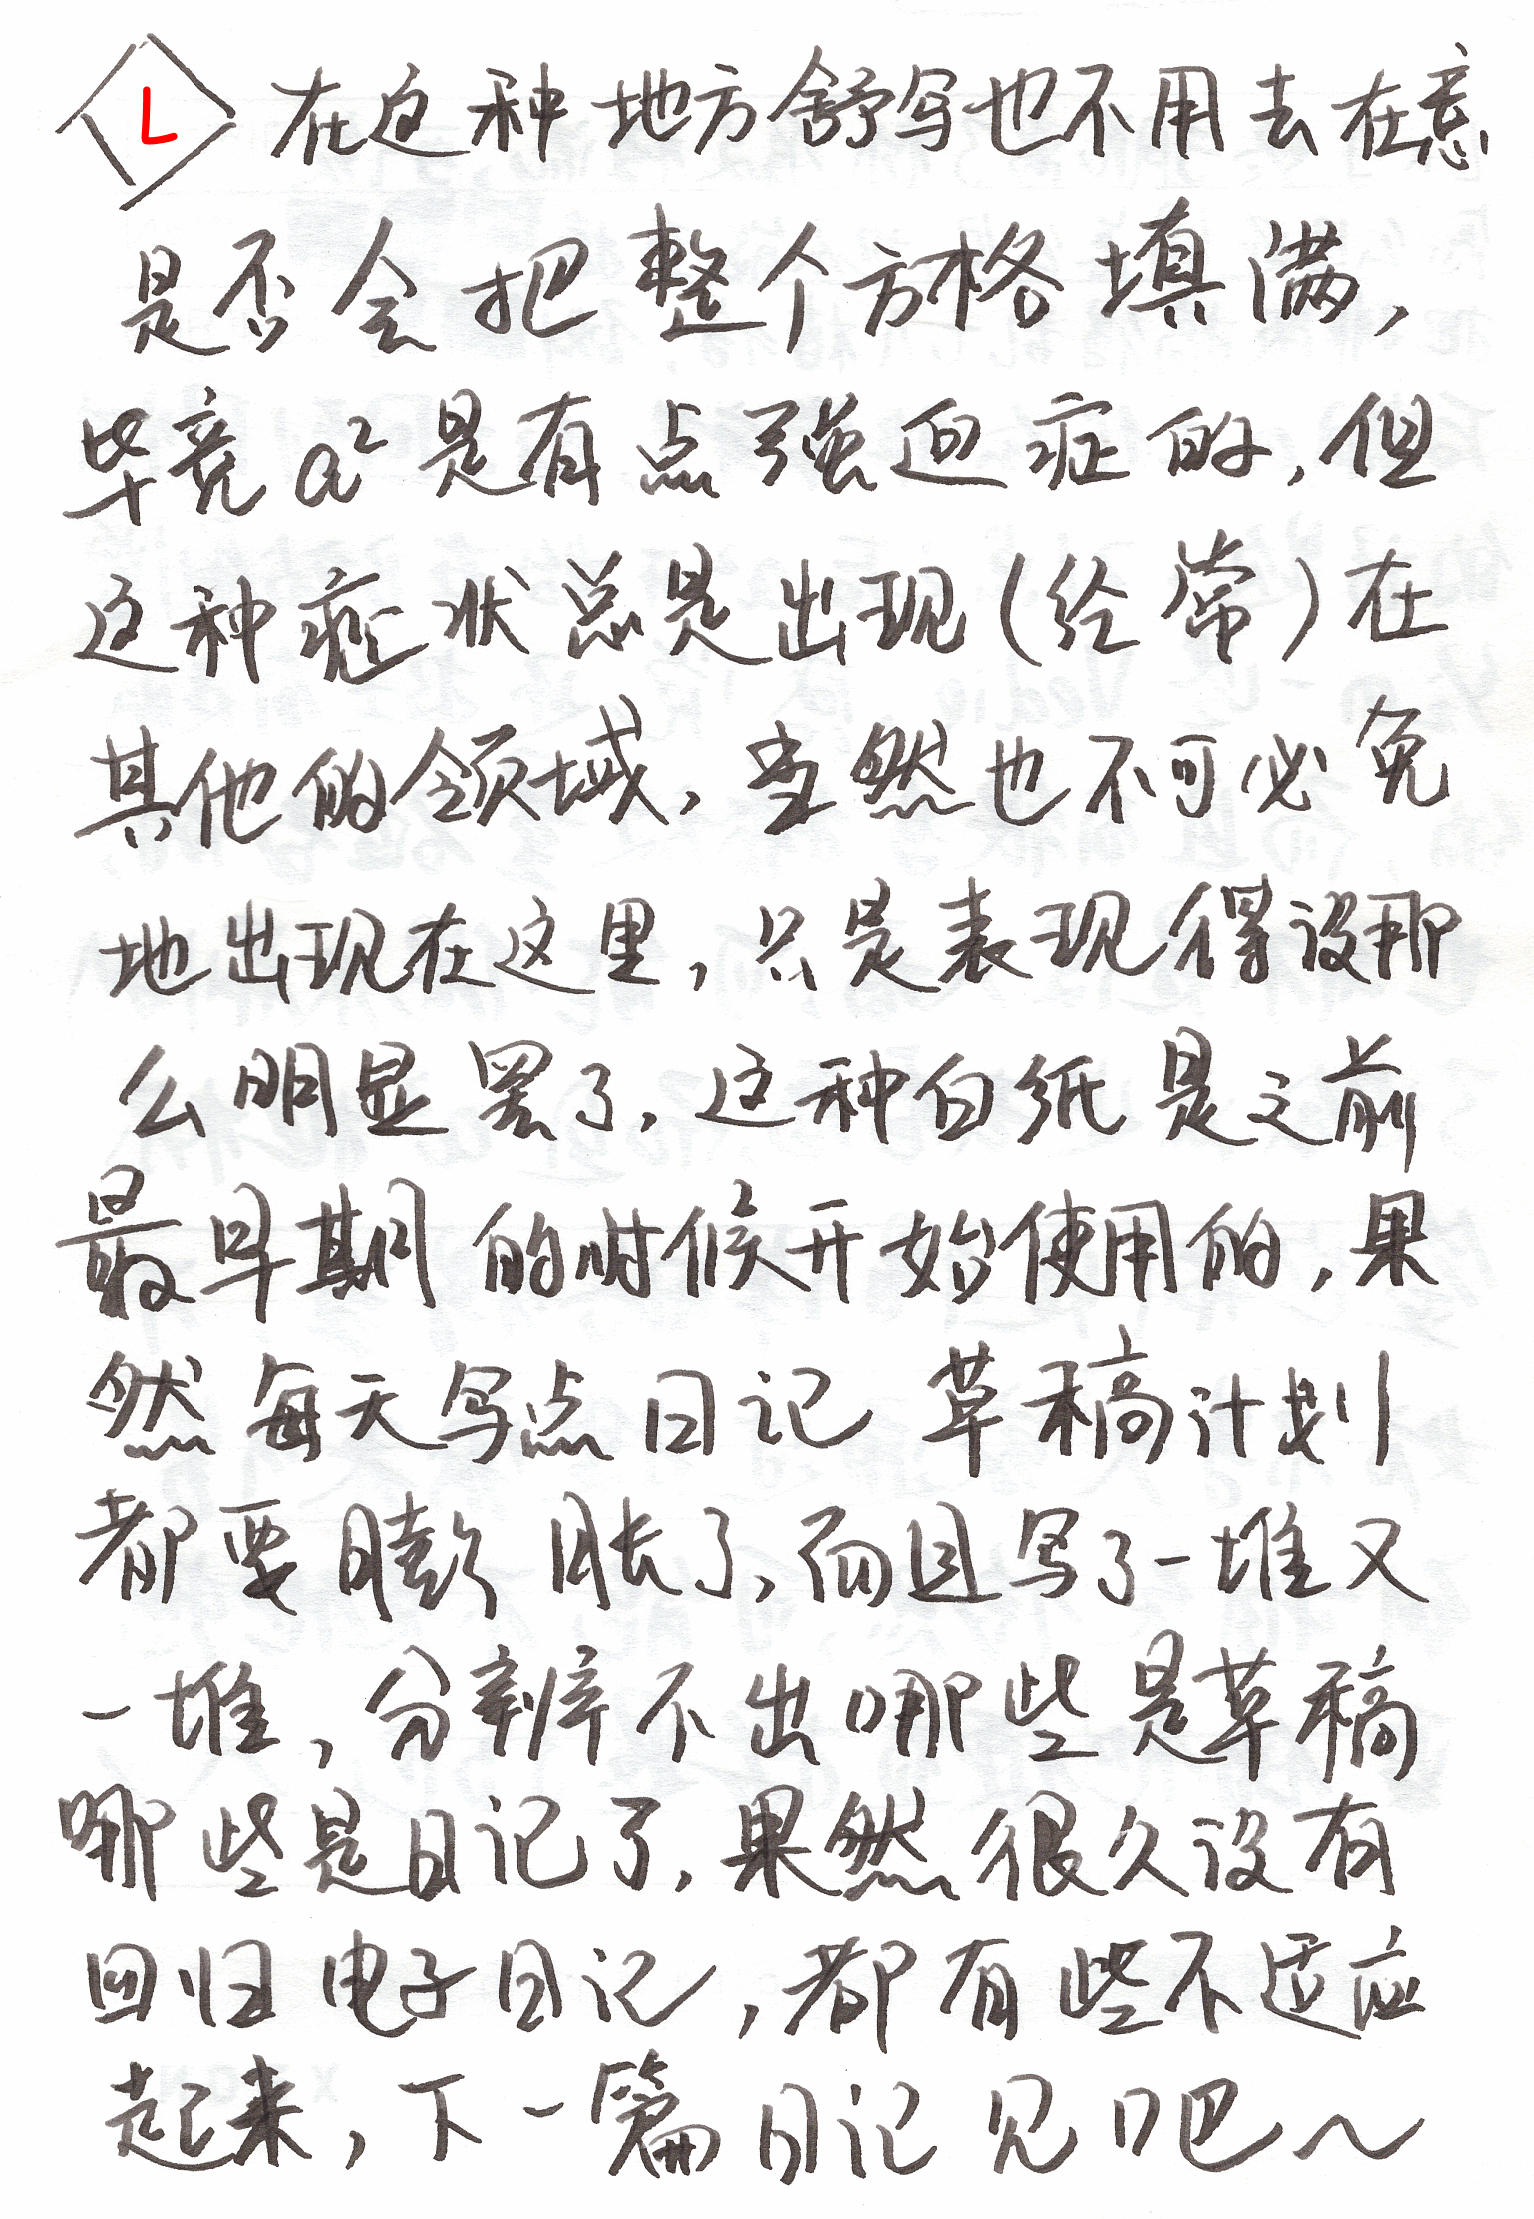 L 在这种地方舒写也不用去在意
是否会把整个方格填满，
毕竟a²是有点强迫症的，但
这种症状总是出现（经常）在
其他的领域，当然也不可必免
地出现在这里，只是表现得没那
么明显罢了，这种白纸是之前
最早期的时候开始使用的，果
然每天写点日记草稿计划
都要膨胀了，而且写了一堆又
一堆，分辨不出哪些是草稿
哪些是日记了，果然很久没有
回归电子日记，都有些不适应
起来，下一篇日记见吧～